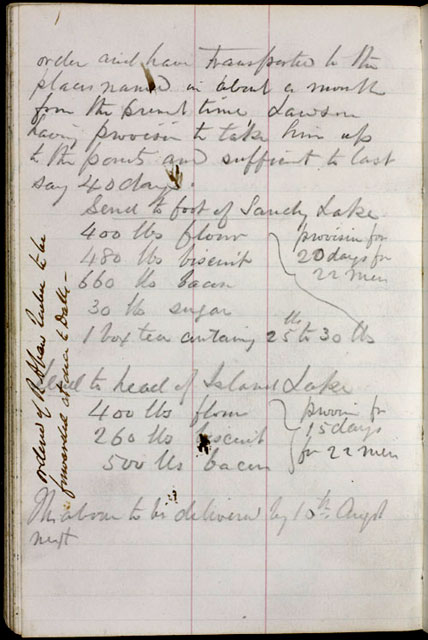 order and have transported to the
places named in about a month
from the present time Lawson
having provisin to take him up
to the points and sufficient to last
say 40 days.
Send to foot of Sandy Lake
400 lbs flour
480 lbs biscuit
660 lbs bacon
30 lbs sugar
1 box tea containing 25 lb to 30 lbs
provisin for
20 days for
22 men
Send to head of Island Lake
400 lbs flour
260 lbs biscuit
500 lbs bacon
provisin for
15 days
for 22 men
The above to be delivered by 15th Augst
next
orders of to be
forwarded at once to